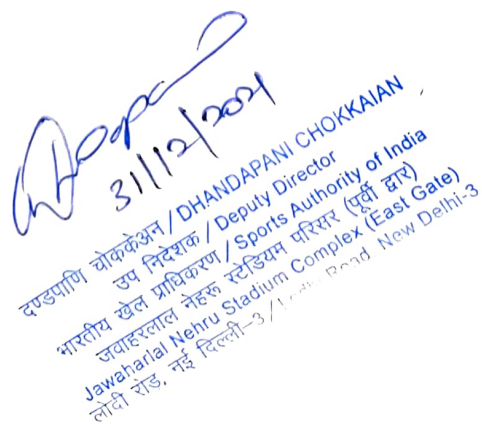 31/12/2021
दण्डपाणि चोककेअन / DHANDAPANI CHOKKAIAN
उप निदेशक / Deputy Director
भारतीय खेल प्राधिकरण / Sports Authority of India
जवाहरलाल नेहरू स्टेडियम परिसर (पूर्वी द्वार)
Jawaharlal Nehru Stadium Complex (East Gate)
लोदी रोड, नई दिल्ली-3 / Road, New Delhi-3